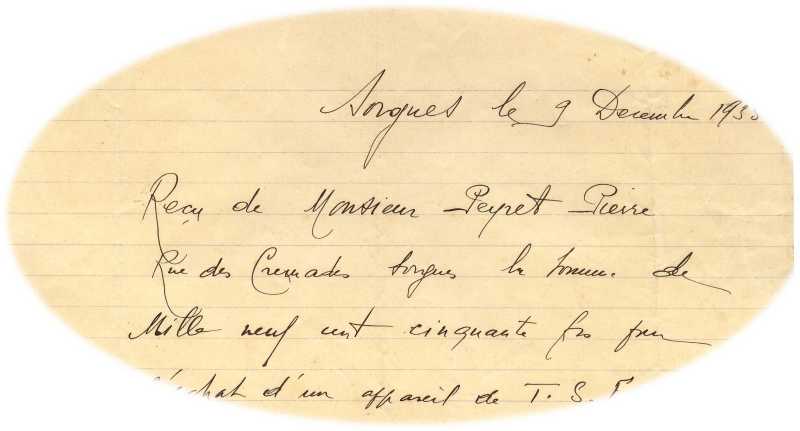 Sorgues le 9 Decembre 193
Reçu de Monsieur Peyret Pierre
Rue des Cremades Sorgues la somme de
Mille neuf cent cinquante frs pour
l'achat d'un appareil de T. S. F